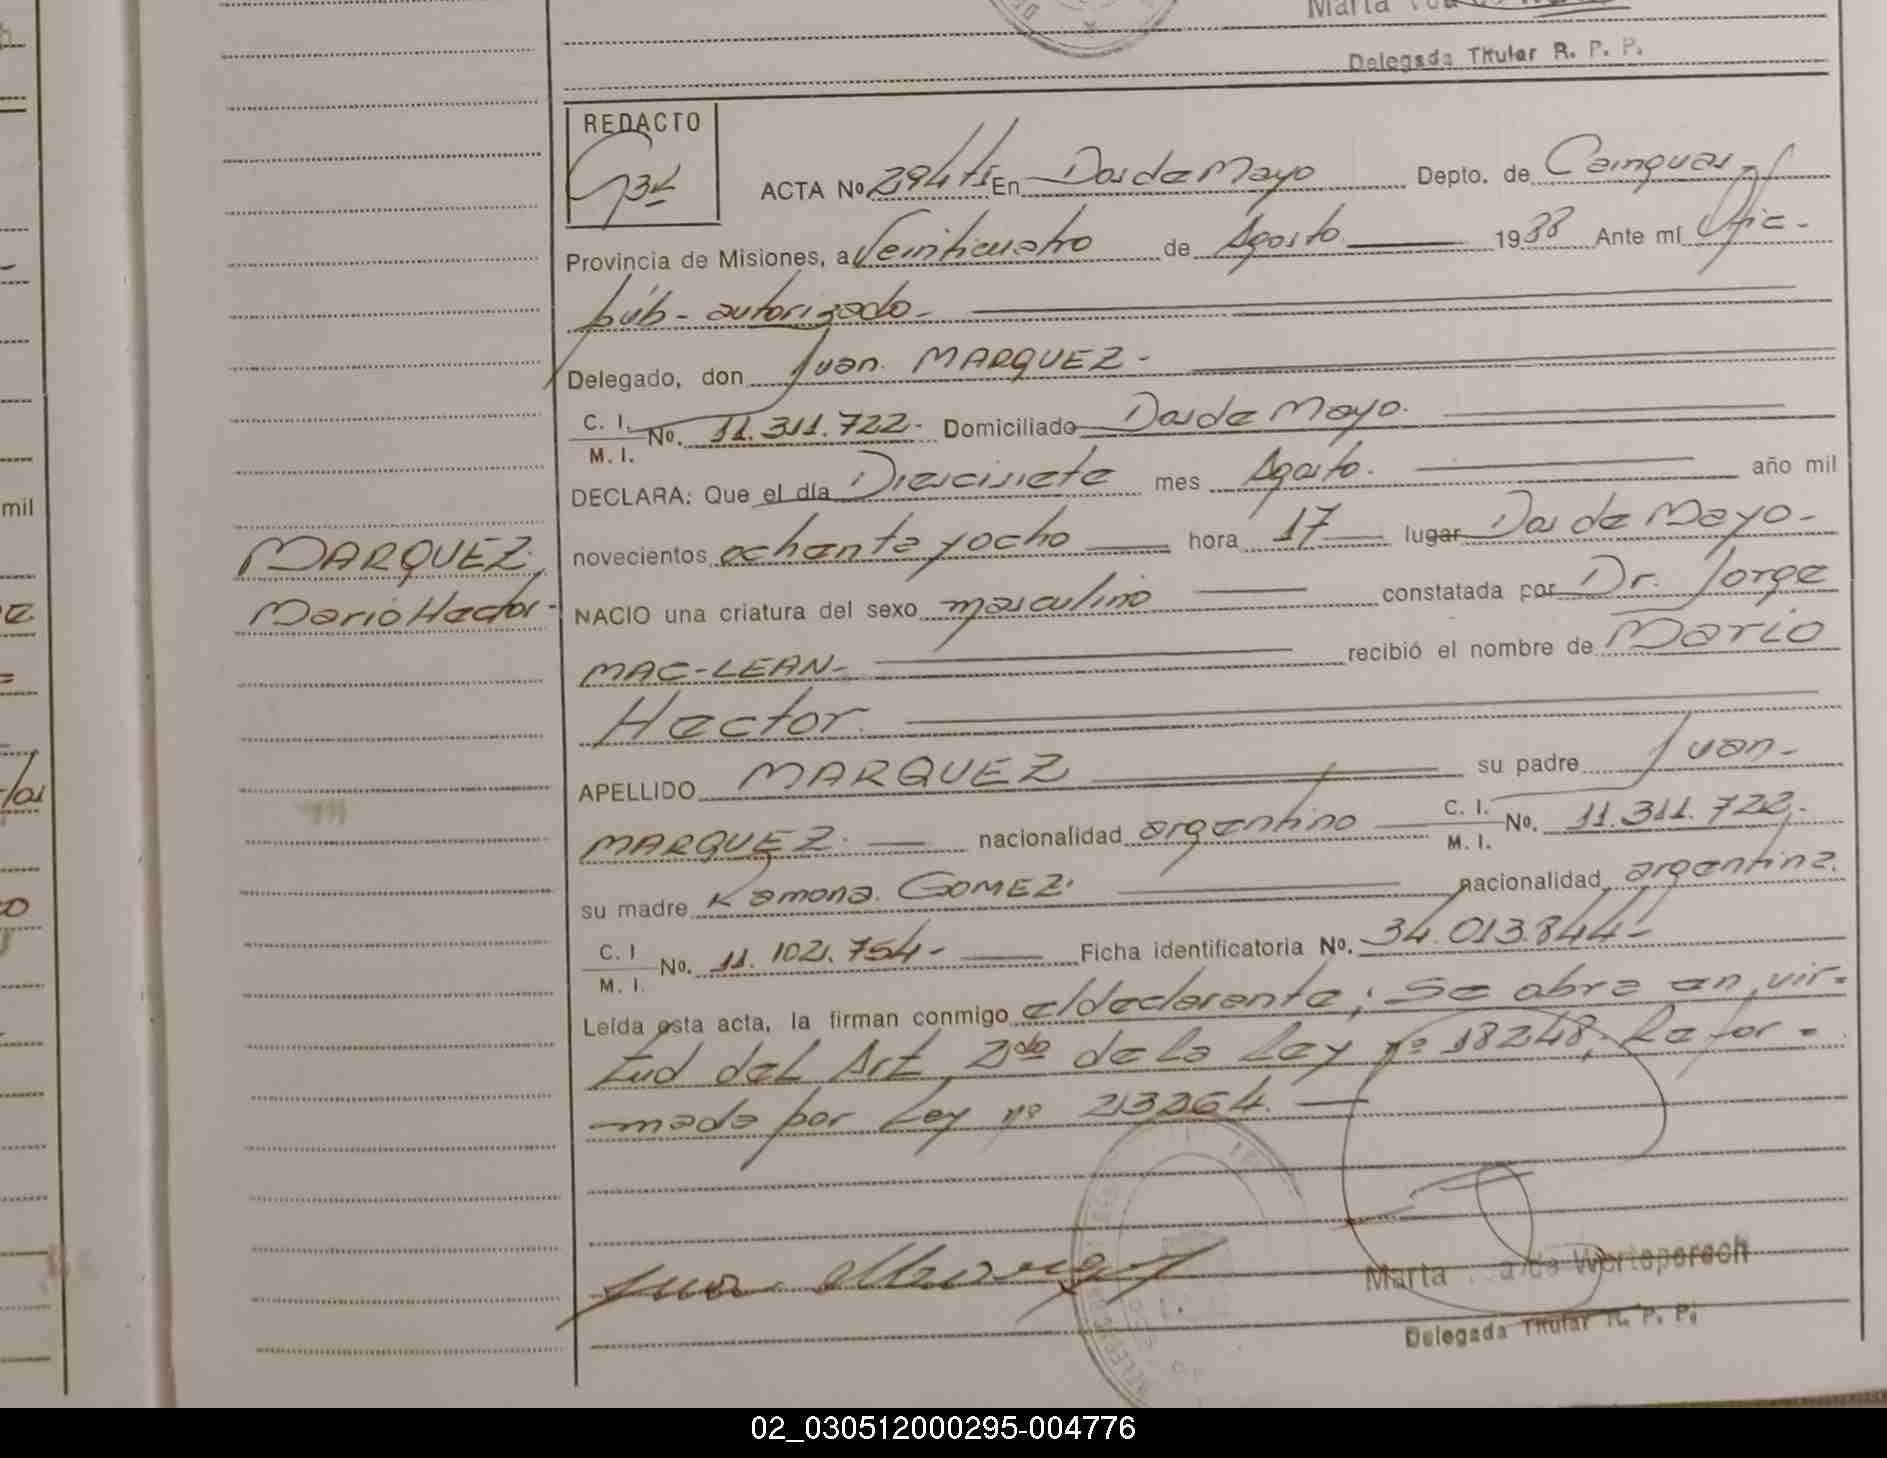 Marta
Delegada Titular R. P. P.
REDACTO
ACTA No 294 En Dos de Mayo Depto. de Cainguas
Provincia de Misiones, a Veinticuatro de Agosto 1988 Ante mí Ofic-
púb- autorizado-
Delegado, don Juan. MARQUEZ-
C. I.
M. I. No. 11.311.722- Domiciliado Dos de Mayo.
DECLARA: Que el día Diescisiete mes Agosto. año mil
mil
novecientos ochenta y ocho hora 17 lugar Dos de Mayo-
MARQUEZ.
NACIO una criatura del sexo masculino constatada por Dr. Jorge
Mario Hector-
MAC-LEAN- recibió el nombre de Mario
Hector.
APELLIDO MARQUEZ su padre Juan-
MARQUEZ. nacionalidad argentino C. I.
M. I. No. 11.311.722.
su madre Ramona. GOMEZ. nacionalidad argentina.
C. I
M. I. No. 11.1021.754- Ficha identificatoria No. 34.013.844-
Leída esta acta, la firman conmigo el declarante; Se abre en vir-
tud del Art 2do de la Ley nº 18248, Refor-
mada por Ley nº 23264.
Juan Marquez
Marta de Werteperech
Delegada Titular R. P. P.
02_030512000295-004776